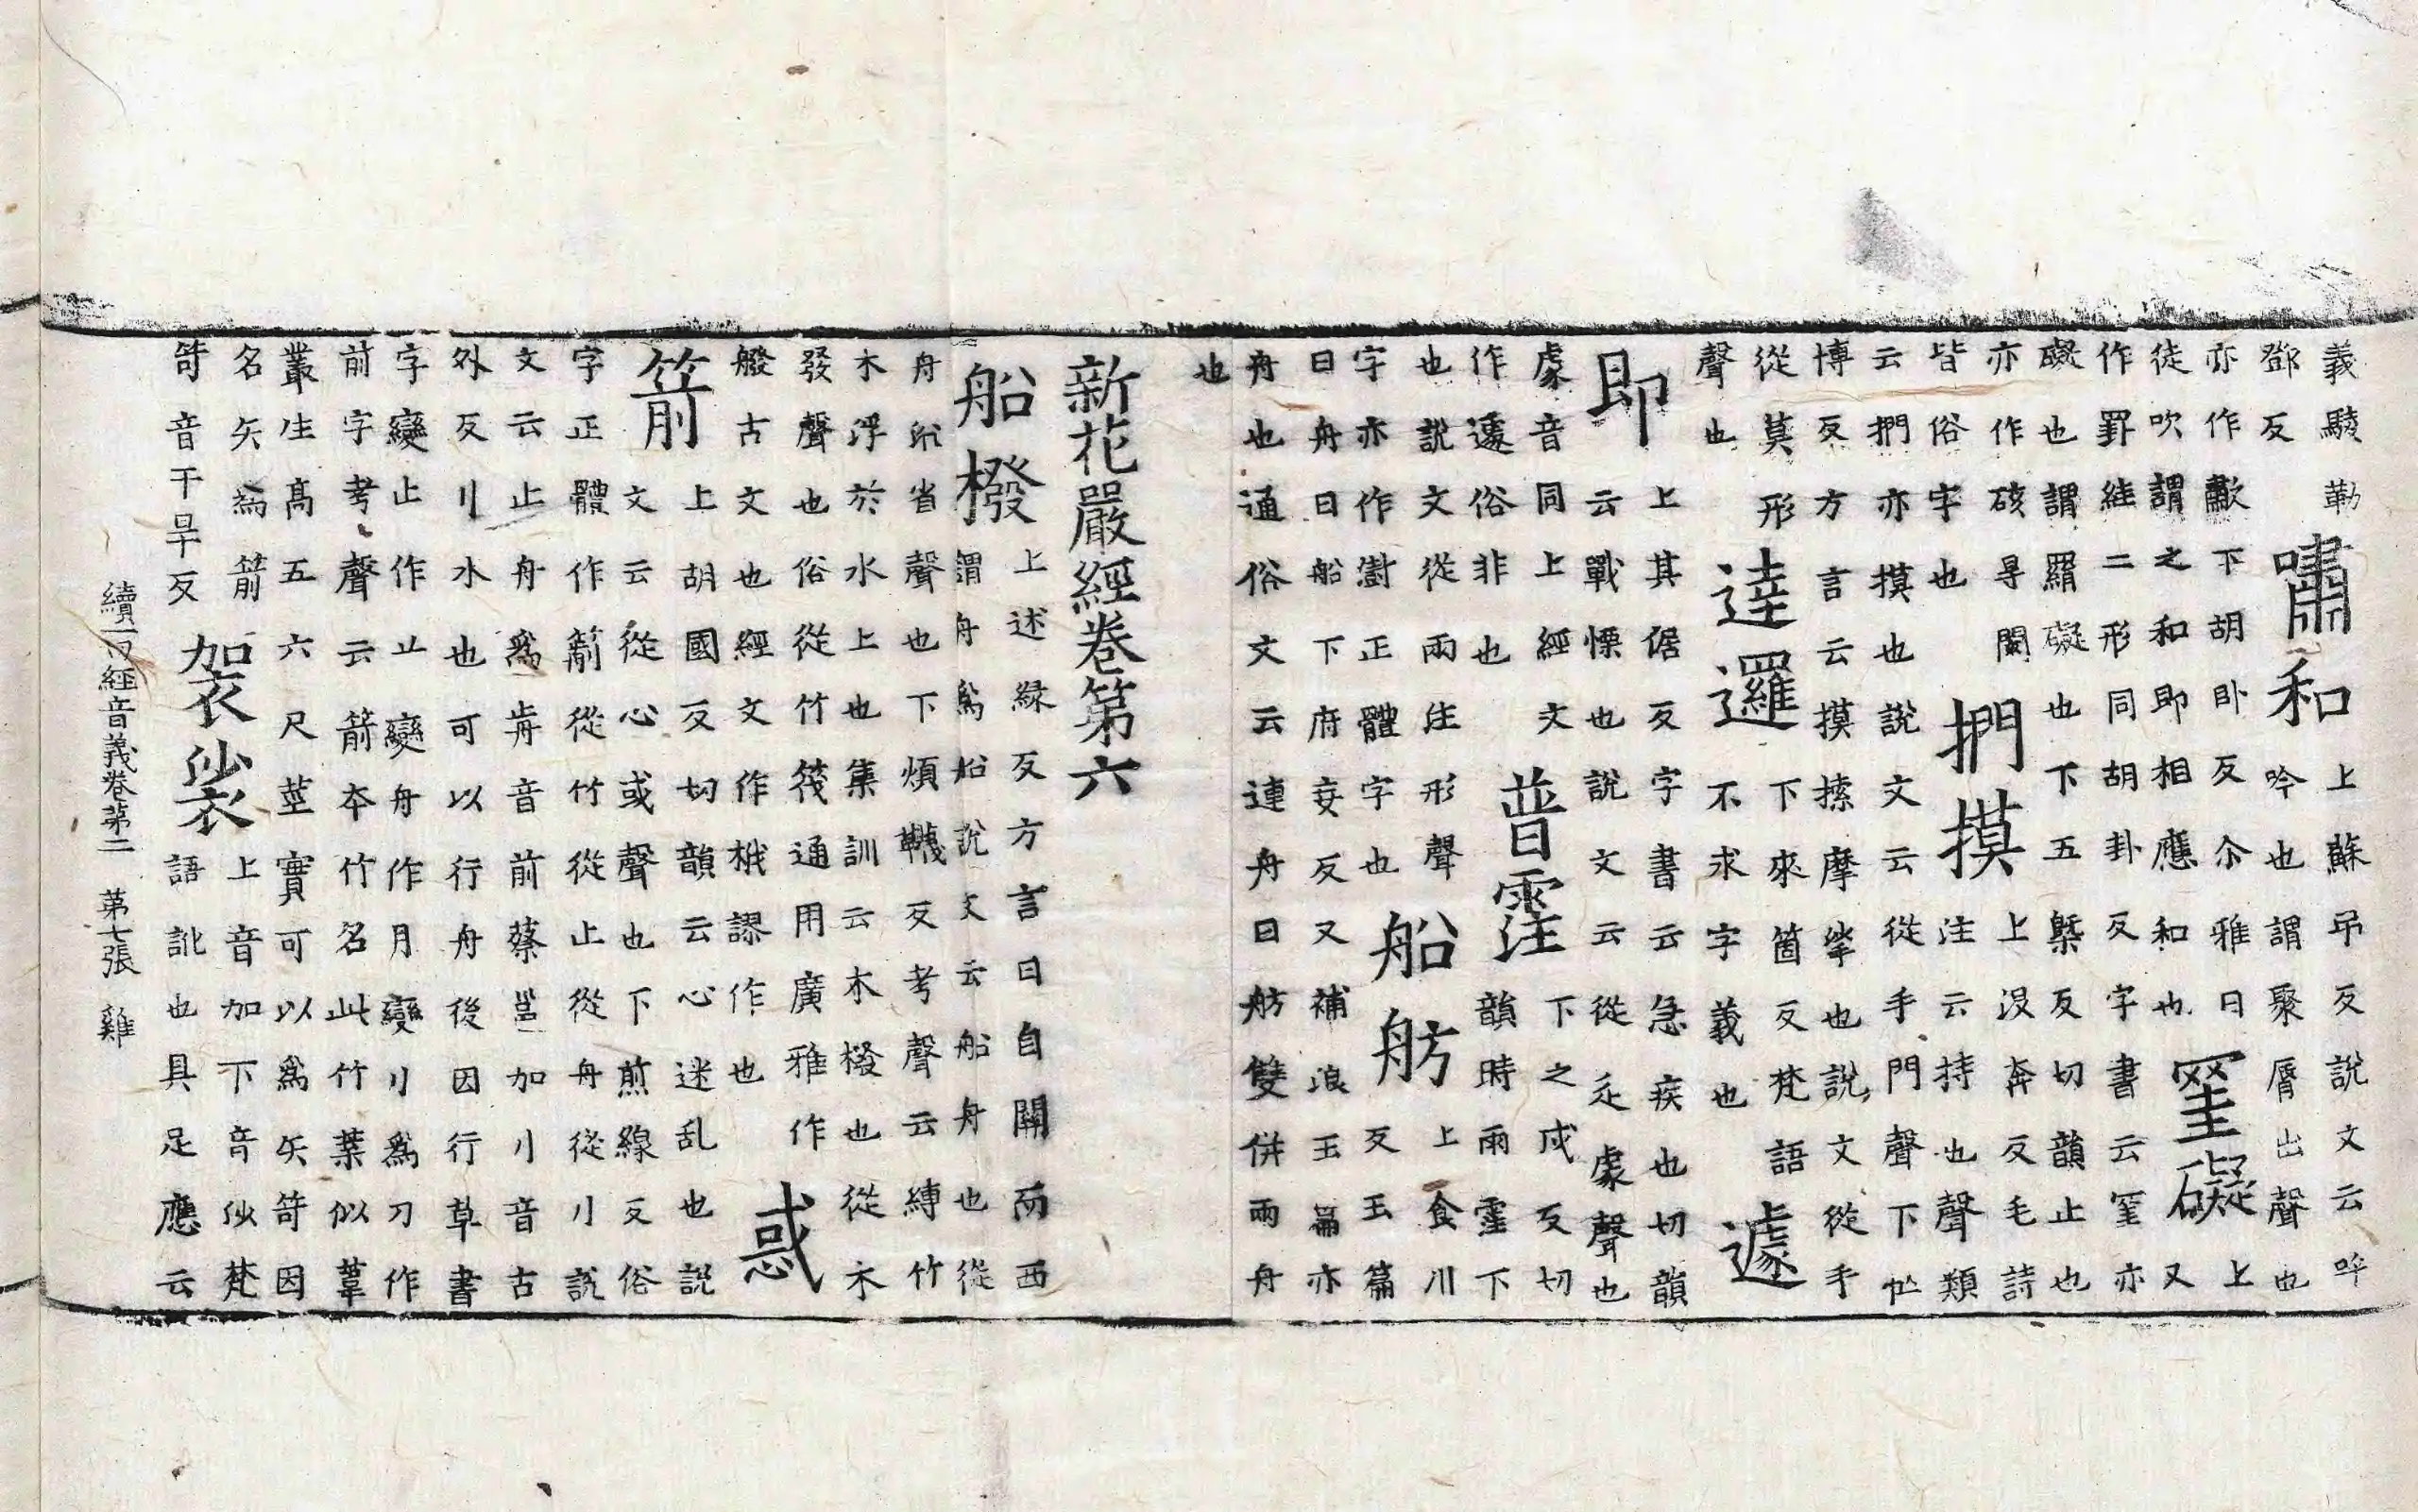 義騣勒
鄧反
嘯和
上蘇弔反說文云吽
吟也謂聚脣出聲也
亦作歗下胡卧反尒雅曰
徒吹謂之和即相應和也
罣礙
上
又
作罫絓二形同胡卦反字書云罣亦
礙也謂羂礙也下五槩反切韻止也
亦作硋㝵閡
皆俗字也
捫摸
上没奔反毛詩
注云持也聲類
云捫亦摸也說文云從手門聲下忙
博反方言云摸摸摩挲也說文從手
從莫形
聲也
達邏
下來箇反梵語
不求字義也
遽
即
上其倨反字書云急疾也切韻
云戰慄也說文云從辵豦聲也
豦音同上經文
作遽俗非也
普霔
下之戍反切
韻時雨霔下
也說文從雨注形聲
字亦作澍正體字也
船舫
上食川
反玉篇
曰舟曰船下府妄反又補浪玉篇亦
舟也通俗文云連舟曰舫雙併兩舟
也
新花嚴經卷第六
船橃
上述緣反方言曰自關而西
謂舟爲船說文云船舟也從
舟㕣省聲也下煩韈反考聲云縛竹
木浮於水上也集訓云木橃也從木
發聲也俗從竹筏通用廣雅作
䑺古文也經文作栰謬作也
惑
箭
上胡國反切韻云心迷乱也說
文云從心或聲也下煎線反俗
字正體作葥從竹從止從舟從刂說
文云止舟爲歬音前蔡邕加刂音古
外反刂水也可以行舟後因行草書
字變止作䒑變舟作月變刂爲刀作
前字考聲云箭本竹名此竹葉似葦
叢生高五六尺莖實可以爲矢笴因
名矢為箭
笴音干旱反
袈裟
上音加下音㲚梵
語訛也具足應云
續一切經音義卷第二 第七張 雞